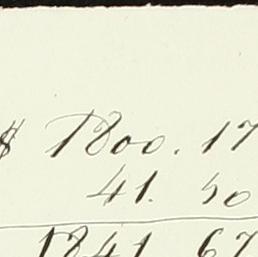 $ 1800. 17
41. 50
1841 67